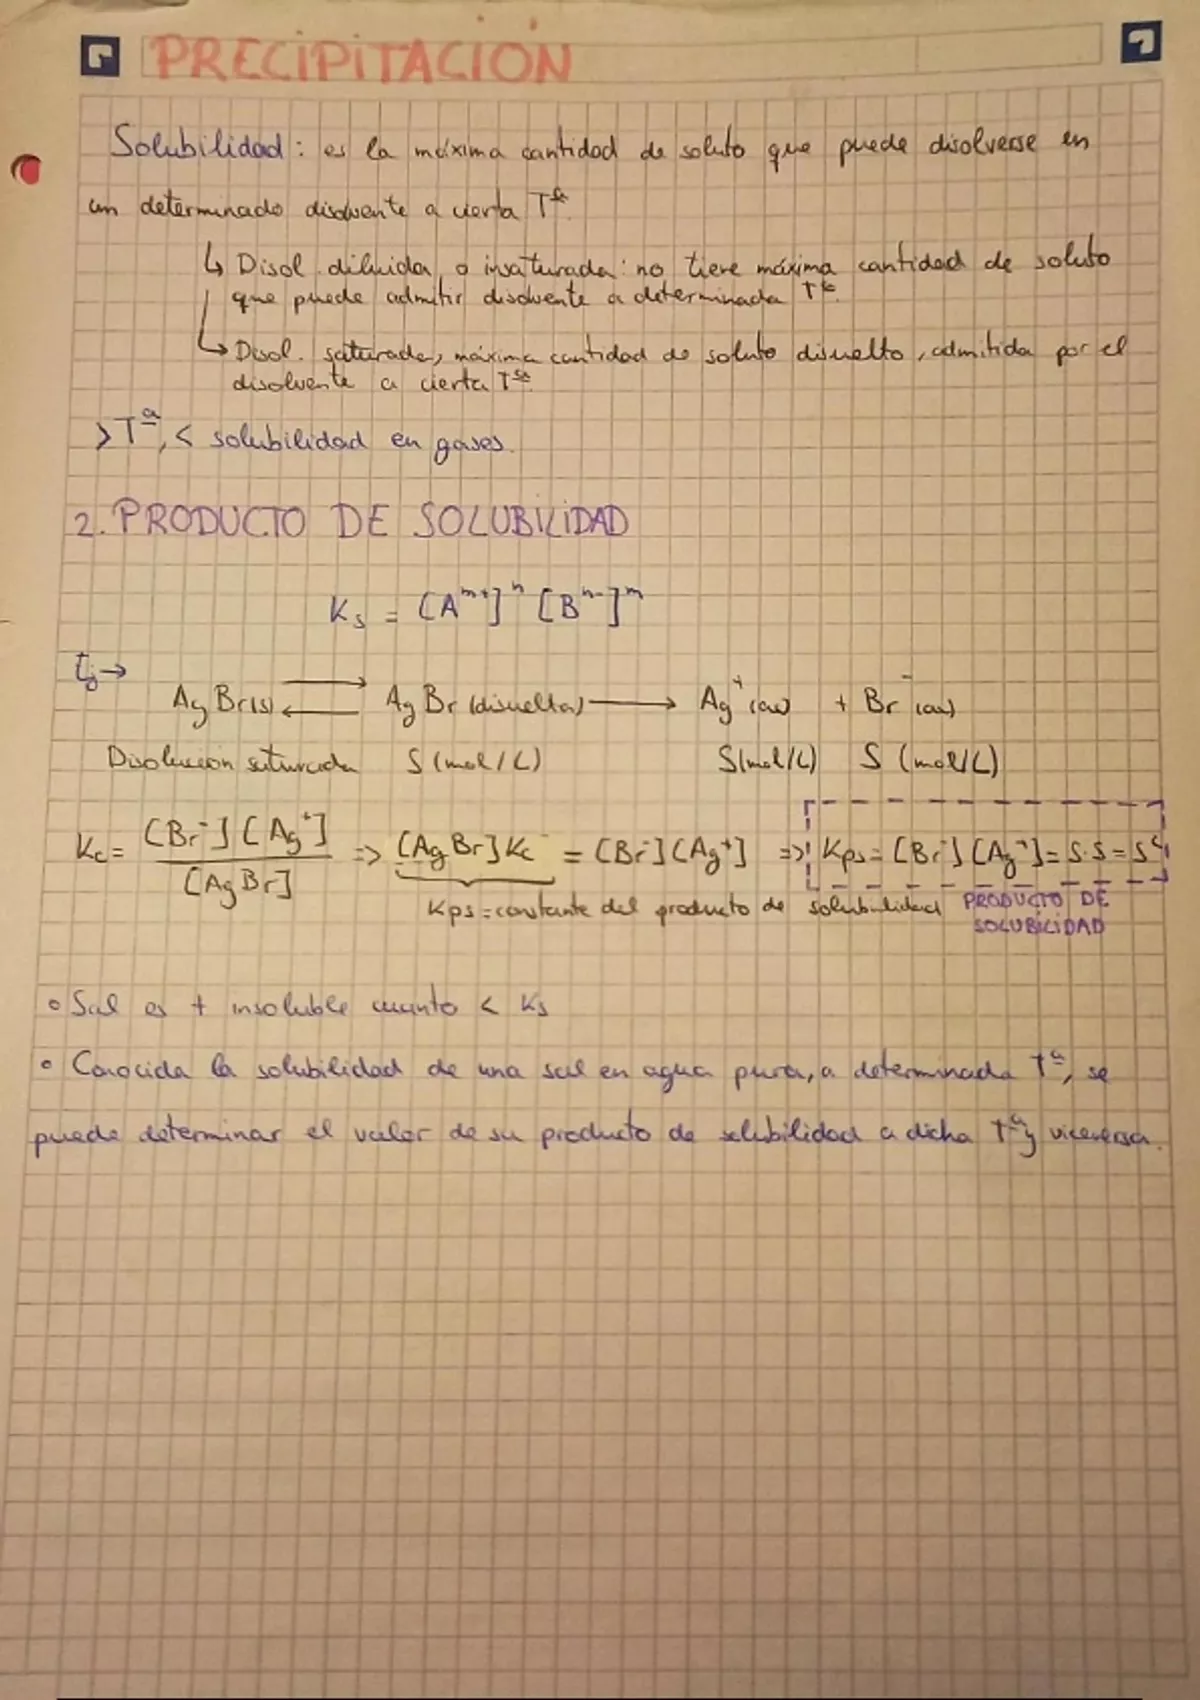 PRECIPITACIÓN
Solubilidad: es la máxima cantidad de soluto que puede disolverse en
un determinado disolvente a cierta Tª.
↳ Disol. diluida o insaturada: no tiene máxima cantidad de soluto
que puede admitir disolvente a determinada Tª.
↳ Disol. saturada, máxima cantidad de soluto disuelto, admitida por el
disolvente a cierta Tª
> Tª, < solubilidad en gases.
2. PRODUCTO DE SOLUBILIDAD
Ks = [Aᵐ⁺]ⁿ [Bⁿ⁻]ᵐ
Ej →
AgBr(s) ⇄ AgBr (disuelta) → Ag⁺(aq) + Br⁻(aq)
Disolución saturada S (mol/L) S(mol/L) S (mol/L)
Kc = [Br⁻][Ag⁺] / [AgBr] => [AgBr]Kc = [Br⁻][Ag⁺] => Kps = [Br⁻][Ag⁺] = S·S = S²
Kps = constante del producto de solubilidad PRODUCTO DE
SOLUBILIDAD
• Sal es + insoluble cuanto < Ks
• Conocida la solubilidad de una sal en agua pura, a determinada Tª, se
puede determinar el valor de su producto de solubilidad a dicha Tª y viceversa.